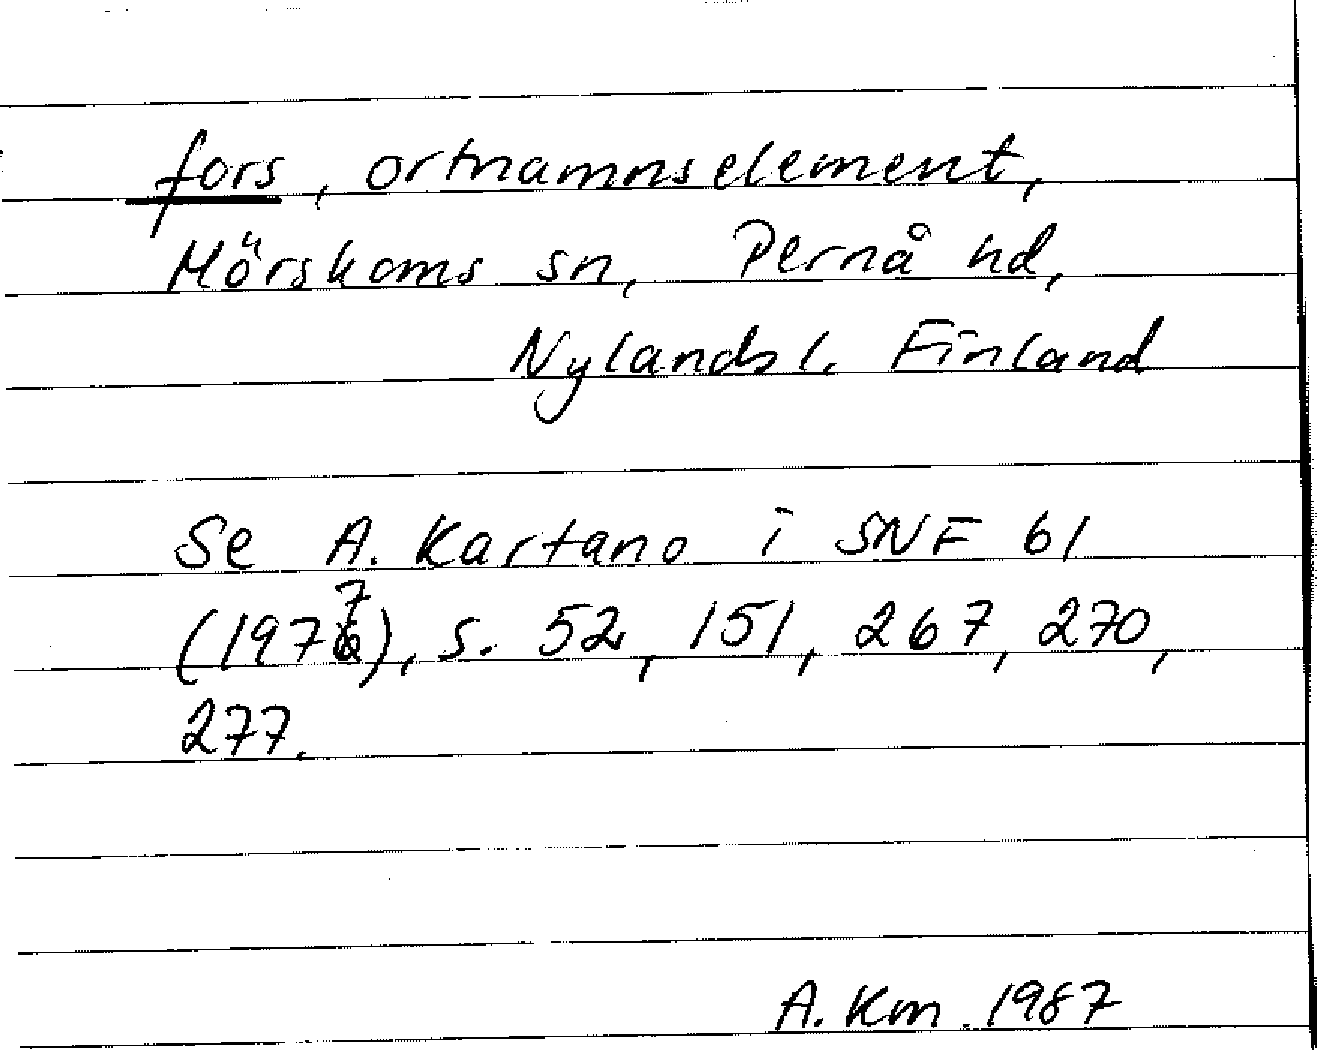 fors, ortnamnselement,
Mörskoms sn, Pernå hd,
Nylands l. Finland
Se A. Kartano i SNF 61
(1977), s. 52, 151, 267, 270,
277.
A. Km. 1987